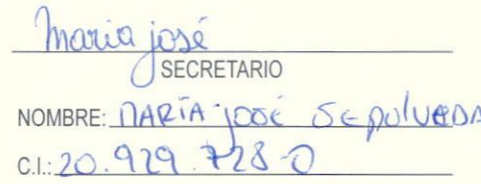 Maria josé
SECRETARIO
NOMBRE: MARÍA JOSÉ SEPULVEDA
C.I.: 20.929.728-0